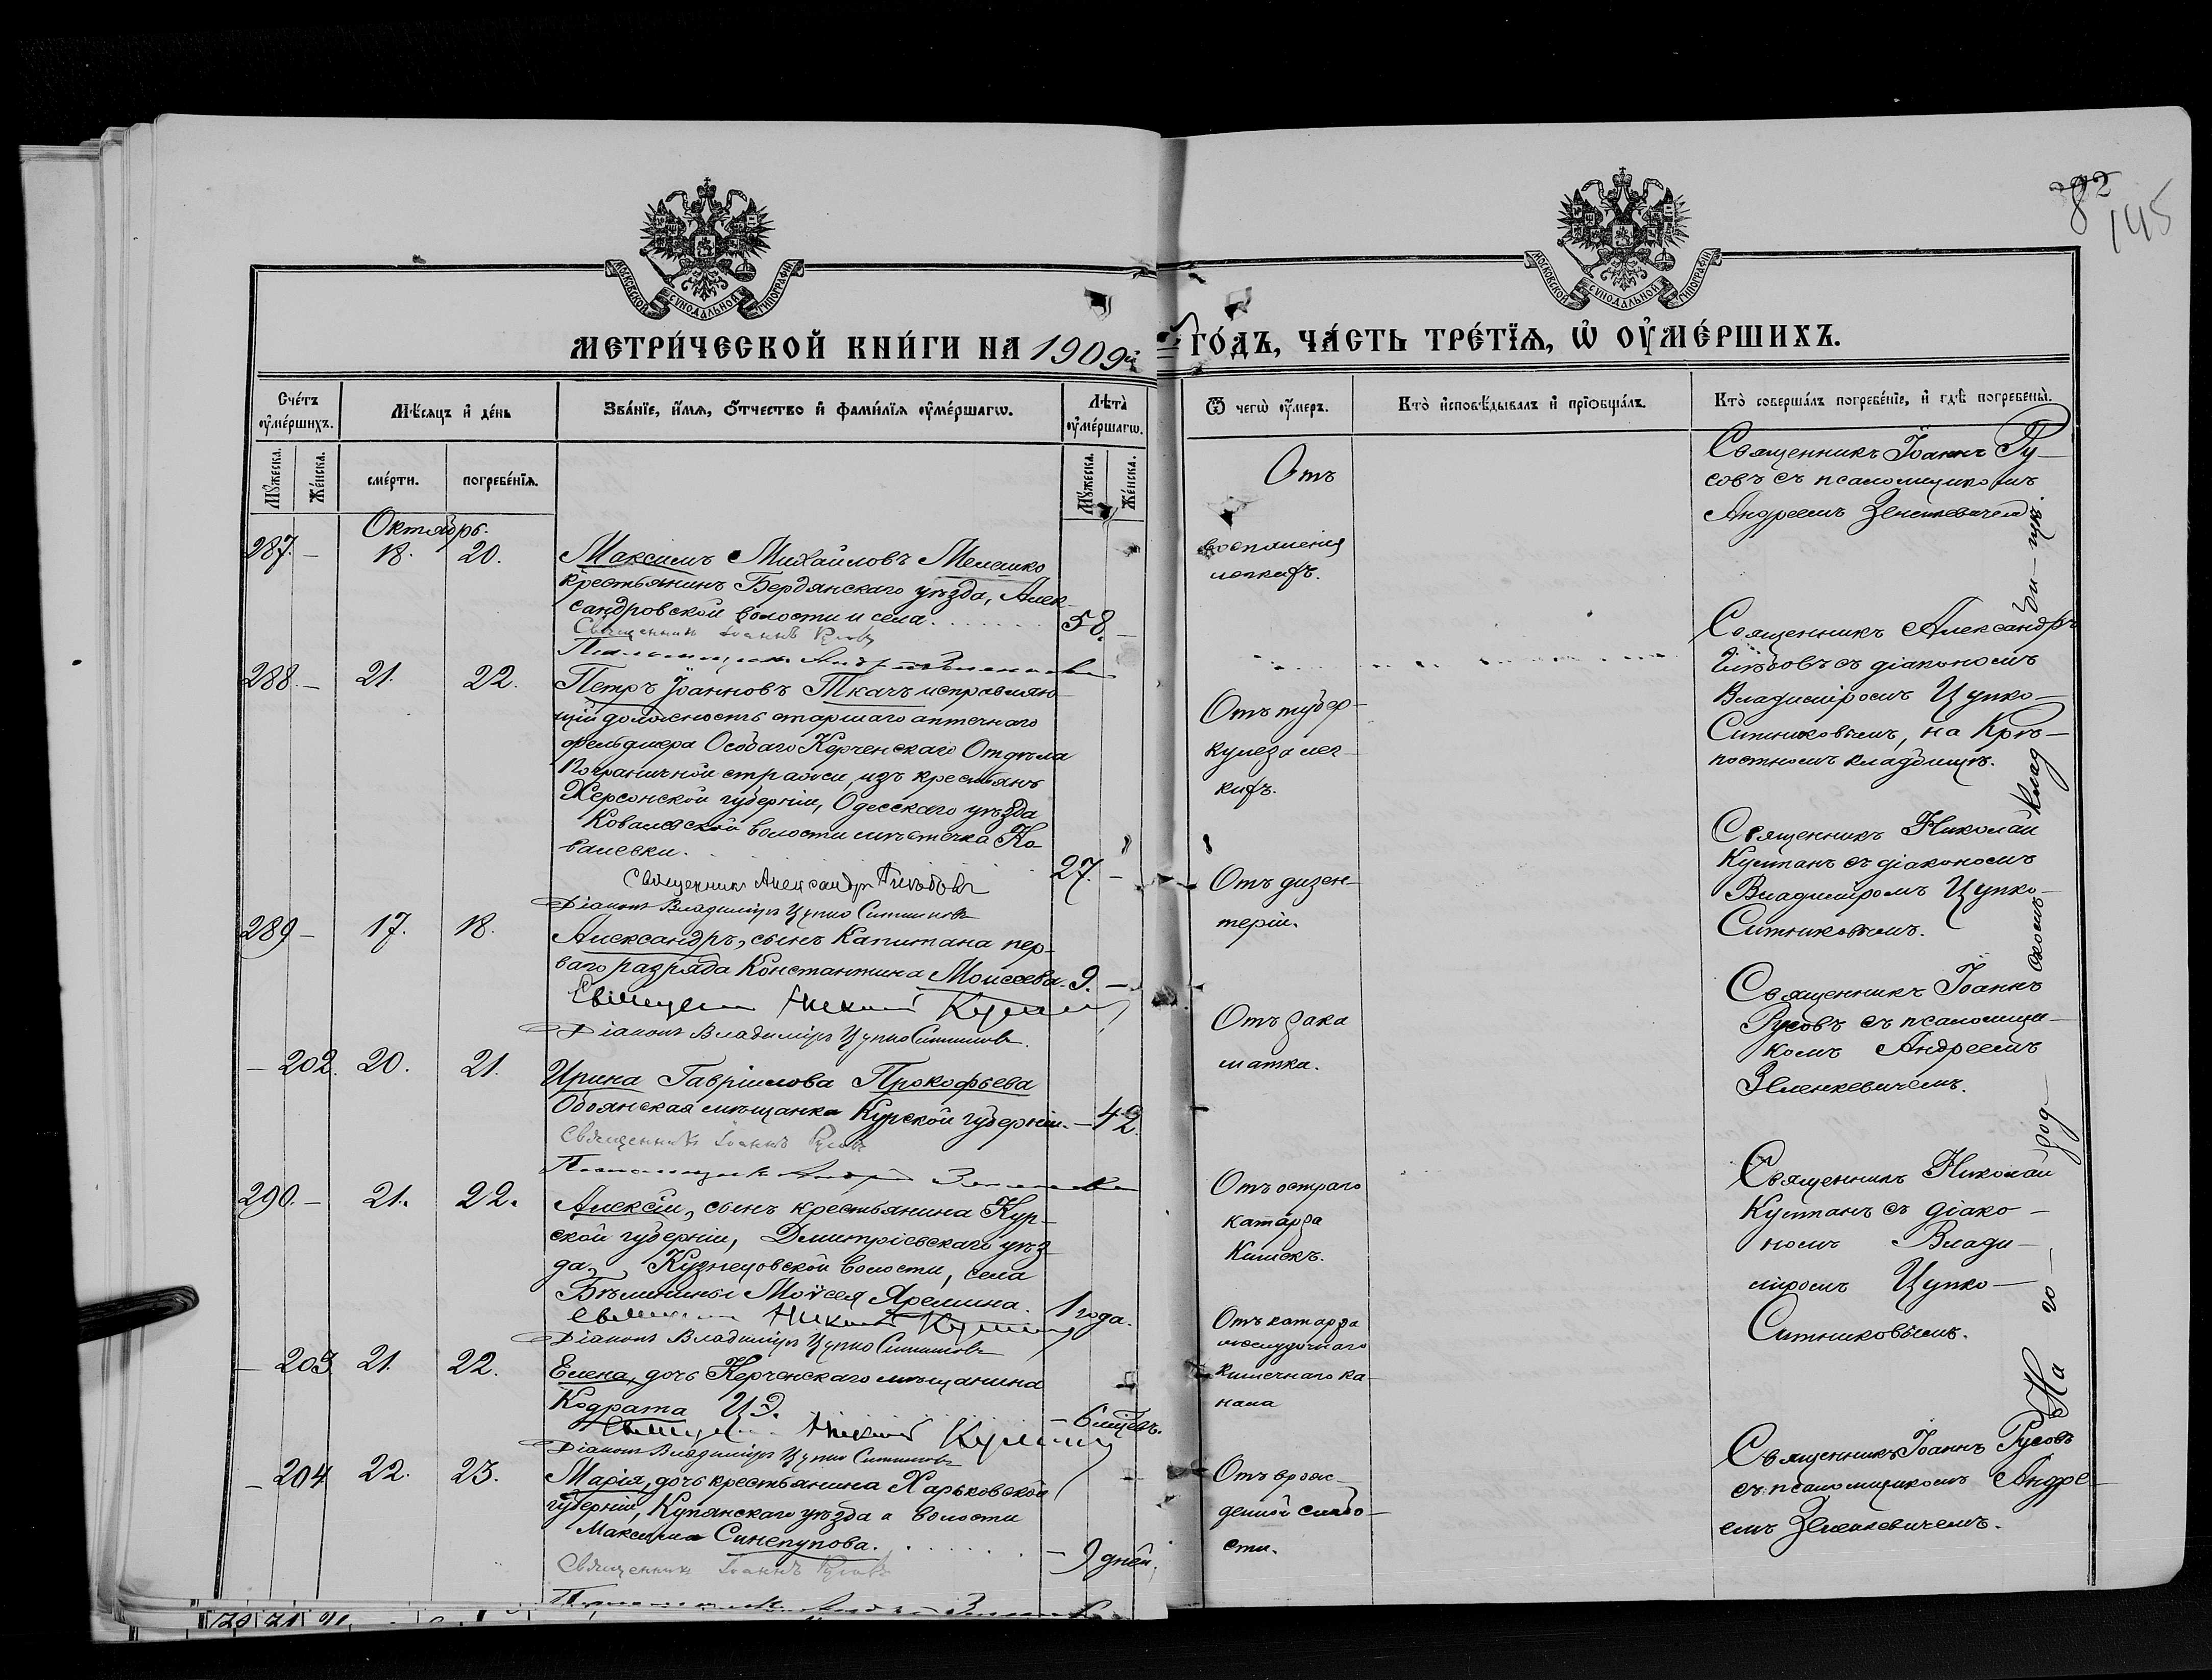 82
145
МОСКОВСКОЙ СѴНОДАЛЬНОЙ ТИПОГРАФІИ
МОСКОВСКОЙ СѴНОДАЛЬНОЙ ТИПОГРАФІИ
МЕТРИ́ЧЕСКОЙ КНИ́ГИ НА 1909й ГО́ДЪ, ЧА́СТЬ ТРЕ́ТЇѦ, Ѡ҆ ОУ҆МЕ́РШИХЪ.
Сче́тъ оу҆ме́ршихъ.
Мꙋ́жеска.
Же́нска.
Мѣ́сяцъ и҆ де́нь
сме́рти.
погребе́нїѧ.
Зва́нїе, и҆́мѧ, ѻ҆́тчество и҆ фами́лїѧ оу҆ме́ршагѡ.
Лѣ́та оу҆ме́ршагѡ.
Мꙋ́жеска.
Же́нска.
Ѿ чегѡ̀ оу҆́меръ.
Кто̀ и҆сповѣ́дывалъ и҆ прїѻбща́лъ.
Кто̀ соверша́лъ погребе́нїе, и҆ гдѣ̀ погребены̀.
Октябрь.
287. – 18. 20.
Максимъ Михайловъ Мелешко
крестьянинъ Бердянскаго уѣзда, Алек-
сандровской волости и села . . . . . 58. –
Священникъ Іоаннъ Русовъ
Псаломщикъ Андрей Зеленкевичъ
Отъ
воспаленія
легкихъ.
Священникъ Іоаннъ Ру-
совъ съ псаломщикомъ
Андреемъ Зеленкевичемъ
288. – 21. 22.
Петръ Іоанновъ Ткачъ исправляю-
щій должность старшаго аптечнаго
фельдшера Особаго Керченскаго Отдѣла
Пограничной стражи, изъ крестьянъ
Херсонской губерніи, Одесскаго уѣзда
Ковалевской волости мѣстечка Ко-
валевки. 27. –
Священникъ Александръ Глѣбовъ
Діаконъ Владиміръ Цупко Ситниковъ
Отъ тубер-
кулеза лег-
кихъ.
Священникъ Александръ
Глѣбовъ съ діакономъ
Владиміромъ Цупко-
Ситниковымъ, на Крѣ-
постномъ кладбищѣ.
289 – 17. 18.
Александръ, сынъ Капитана пер-
ваго разряда Константина Моисеева. 9. –
Священникъ Николай Култанъ
Діаконъ Владиміръ Цупко Ситниковъ.
Отъ дизен-
теріи.
Священникъ Николай
Култанъ съ діакономъ
Владиміромъ Цупко-
Ситниковымъ.
– 202. 20. 21.
Ирина Гавріилова Прокофьева
Обоянская мѣщанка Курской губерніи. – 42.
Священникъ Іоаннъ Русовъ
Псаломщикъ Андрей Зеленкевичъ
Отъ рака
матка.
Священникъ Іоаннъ
Русовъ съ псаломщи-
комъ Андреемъ
Зеленкевичемъ.
290. – 21. 22.
Алексій, сынъ крестьянина Кур-
ской губерніи, Дмитріевскаго уѣз-
да, Кузнецовской волости, села
Бѣлицины Моѵсея Яремина. 1 года.
Священникъ Николай Култанъ
Діаконъ Владиміръ Цупко Ситниковъ
Отъ остраго
катарра
Кишекъ.
Священникъ Николай
Култанъ съ діако-
номъ Влади-
міромъ Цупко-
Ситниковымъ.
– 203. 21. 22.
Елена, дочь Керченскаго мѣщанина
Кодрата Цэ. – 6 мѣсѣцъ.
Священникъ Николай Култанъ
Діаконъ Владиміръ Цупко Ситниковъ
Отъ катарра
желудочнаго
кишечнаго ка-
нала
– 204 22. 23.
Марія, дочь крестьянина Харьковской
губерніи, Купянскаго уѣзда и волости
Максима Синепупова. . . . . – 9 дней.
Священникъ Іоаннъ Русовъ
Псаломщикъ Андрей Зеленкевичъ
Отъ врож-
денной слабо-
сти.
Священникъ Іоаннъ Русовъ
съ псаломщикомъ Андре-
емъ Зеленкевичемъ.
На го-
род-
скомъ
клад
би-
щѣ.